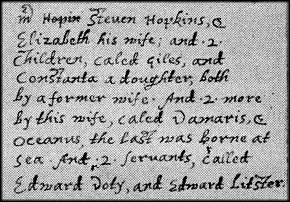 mr Hopin Steven Hopkins, &
Elizabeth his wife; and .2.
Children, caled Giles, and
Constanta a doughter, both
by a former wife. And .2. more
by this wife, caled Damaris, &
Oceanus, the last was borne at
sea. And .2. servants, called
Edward Doty, and Edward Litster.